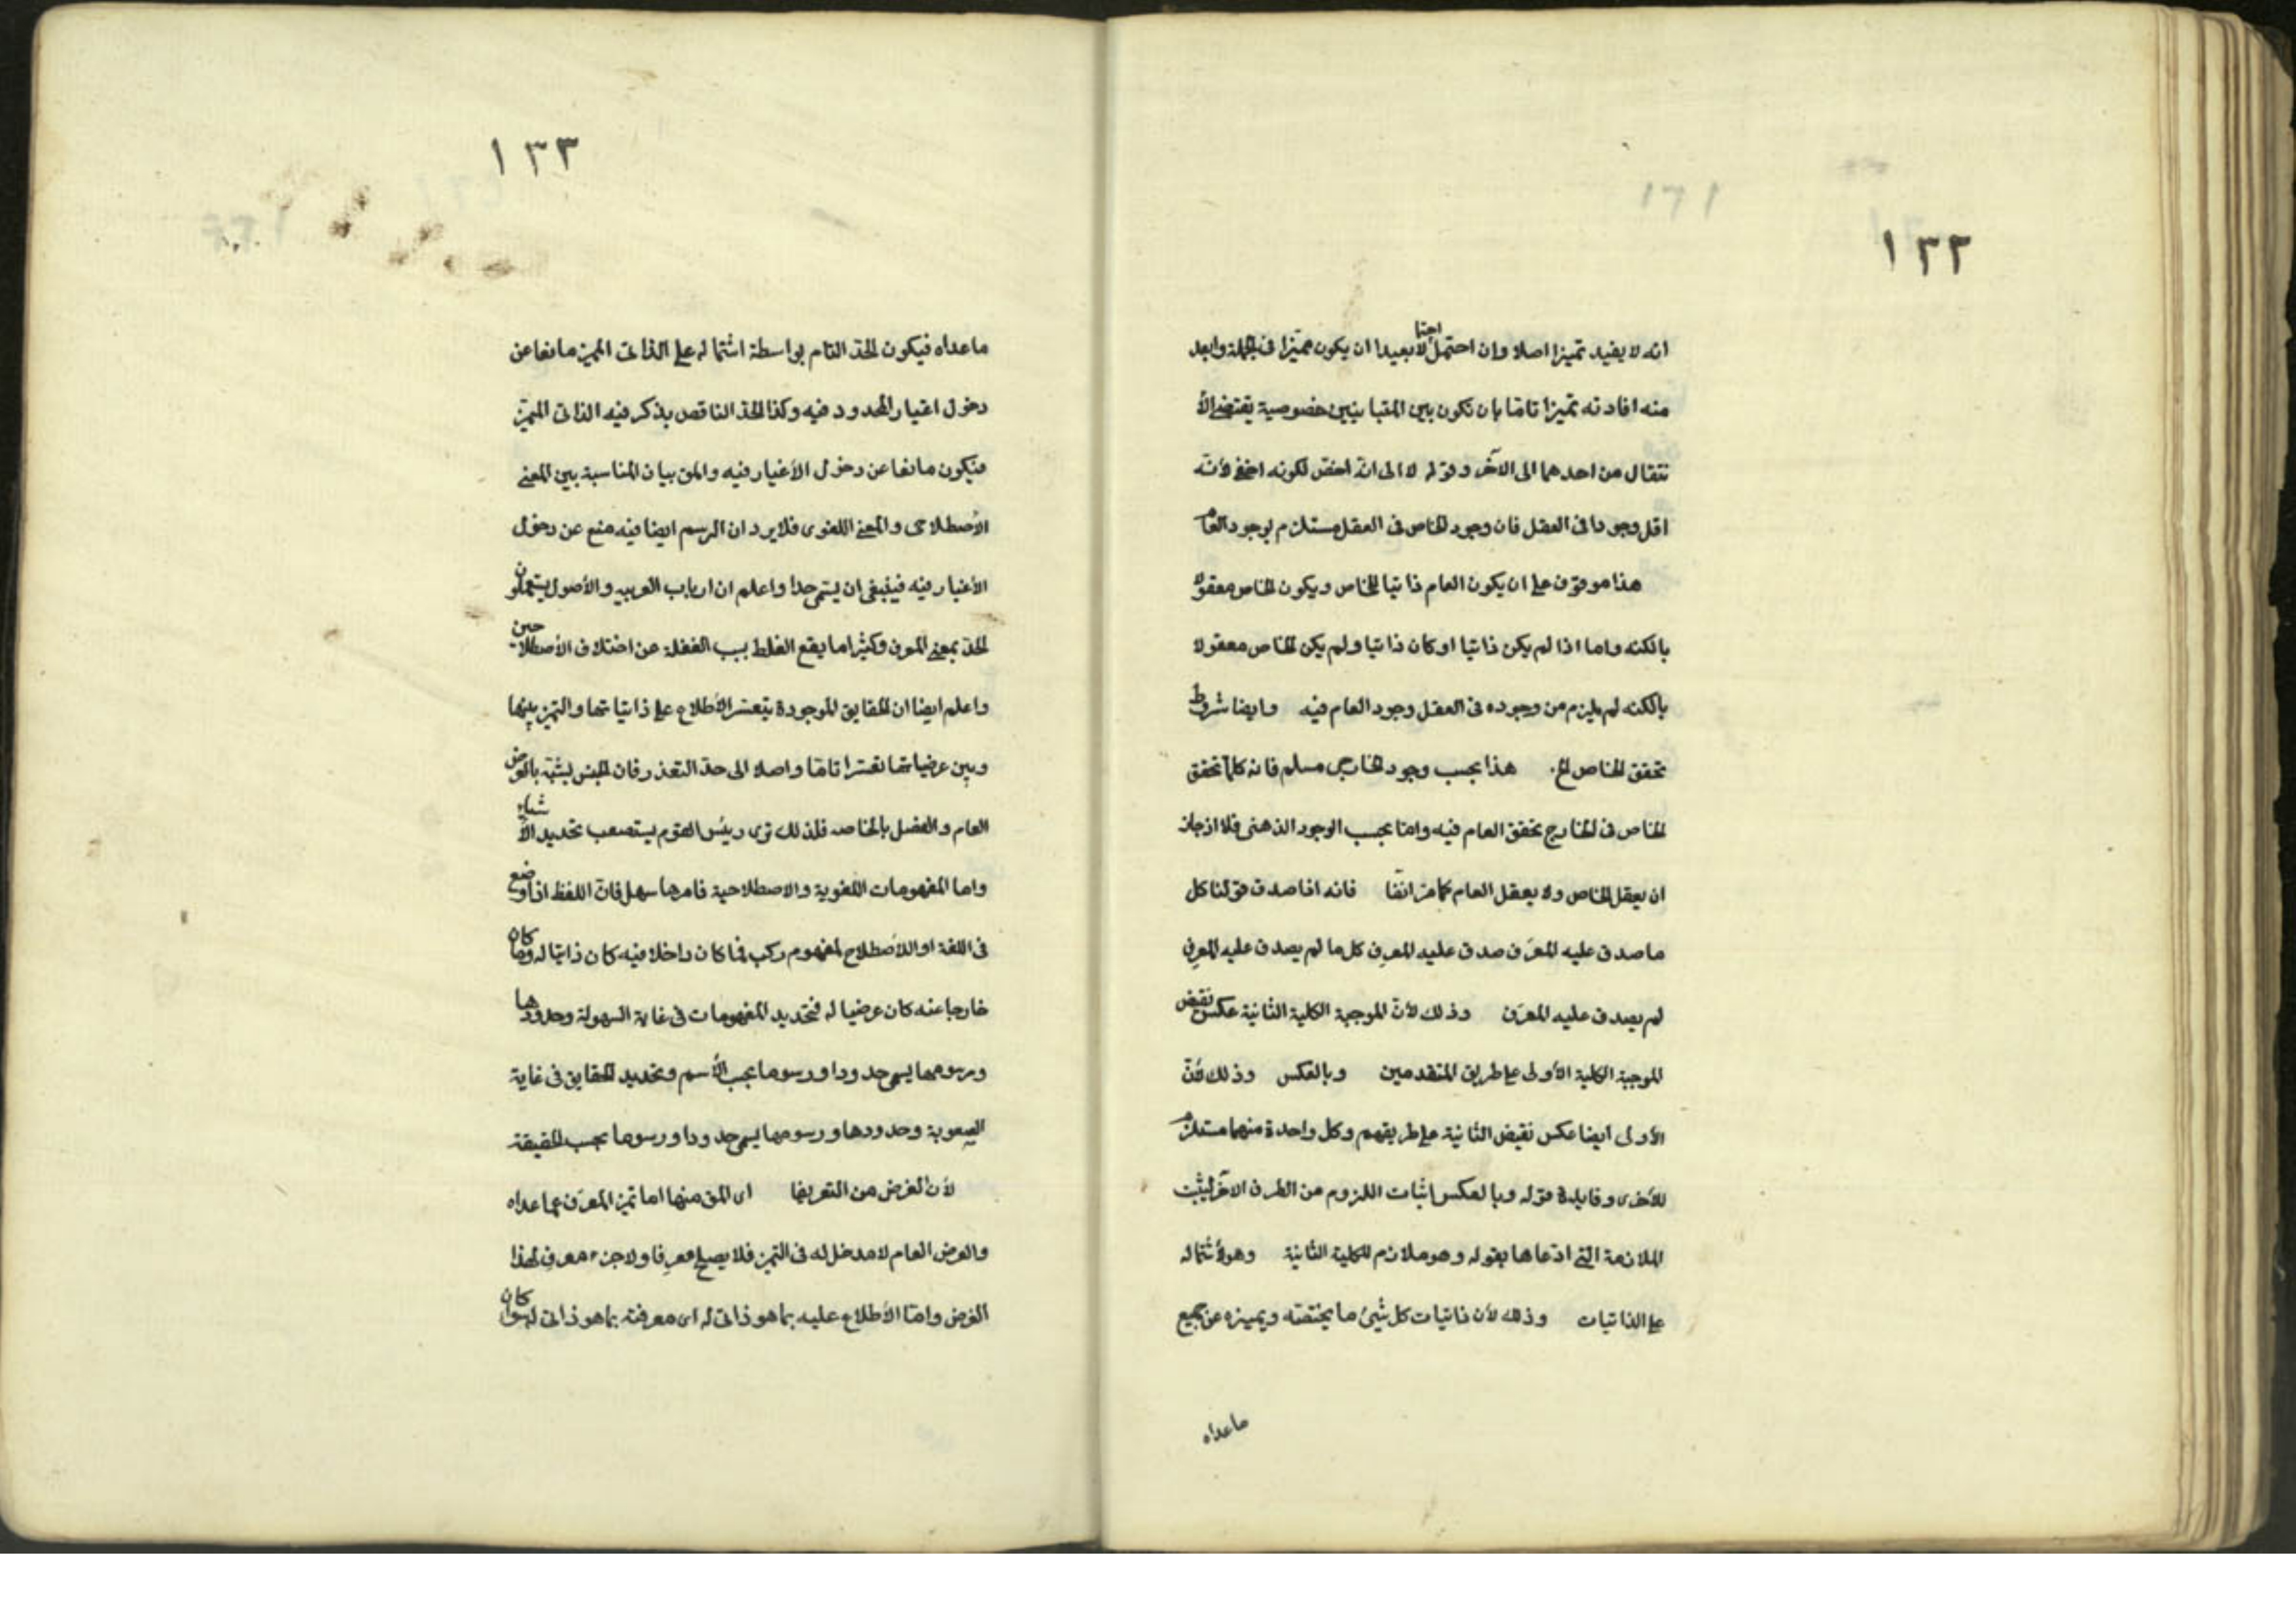 ١٣٢
انه لا يفيد تميزا اصلا وان احتمل احتمالا بعيدا ان يكون مميزا في الجملة وابعد
منه افادته تميزا تاما بان تكون بين المتباينين خصوصية يقتضى الأ
نتقال من احدهما الى الآخر وقوله لا الى انه اخص لكونه اخفى لأنه
اقل وجودا فى العقل فان وجود الخاص فى العقل مستلزم لوجود العام
هذا موقوف على ان يكون العام ذاتيا للخاص ويكون الخاص معقولا
بالكنه واما اذا لم يكن ذاتيا او كان ذاتيا ولم يكن الخاص معقولا
بالكنه لم يلزم من وجوده فى العقل وجود العام فيه وايضا شرط
تحقق الخاص الخ. هذا بحسب وجود الخارجى مسلم فانه كلما تحقق
الخاص فى الخارج تحقق العام فيه واما بحسب الوجود الذهنى فلا اذ جاز
ان يعقل الخاص ولا يعقل العام كما مر انفا فانه اذا صدق قولنا كل
ما صدق عليه المعرَف صدق عليه المعرِف كل ما لم يصدق عليه المعرِف
لم يصدق عليه المعرَف وذلك لأن الموجبة الكلية الثانية عكس نقيض
الموجبة الكلية الأولى على طريق المتقدمين وبالعكس وذلك لأنّ
الأولى ايضا عكس نقيض الثانية على طريقهم وكل واحدة منهما مستلزم
للأخرى وفايدة قوله وبالعكس اثبات اللزوم من الطرف الآخر ليثبت
الملازمة التى ادعاها بقوله وهو ملازم للكلية الثانية وهو لأشتماله
على الذاتيات وذلك لأن ذاتيات كل شيئ ما يختصه ويميزه عن جميع
ماعداه
١٣٣
ماعداه فيكون الحد التام بواسطة اشتماله على الذاتى المميز مانعا عن
دخول اغيار المحدود فيه وكذا الحد الناقص يذكر فيه الذاتى المميّز
فيكون مانعا عن دخول الأغيار فيه والمق بيان المناسبة بين المعنى
الأصطلاحى والمعنى اللغوى فلا يرد ان الرسم ايضا فيه منع عن دخول
الأغيار فيه فينبغى ان يسمى حدا واعلم ان ارباب العربيه والأصول يستعملون
الحد بمعنى المعرف وكثيرا ما يقع الغلط بسبب الغفلة عن اختلاف الأصطلاحين
واعلم ايضا ان الحقايق الموجودة يتعسر الأطلاع على ذاتياتها والتميز بينها
وبين عرضياتها تعسرا تاما واصلا الى حد التعذر فان الجنس يشتبه بالعرض
العام والفصل بالخاصه فلذلك ترى رئيس القوم يستصعب تحديد الأشياء
واما المفهومات اللغوية والاصطلاحية فامرها سهل فان اللفظ اذا وضع
فى اللغة او الأصطلاح لمفهوم مركب فما كان داخلا فيه كان ذاتيا له وما كان
خارجا عنه كان عرضيا له فتحديد المفهومات فى غاية السهولة وحدودها
ورسومها يسمى حدودا ورسوما بحسب الأسم وتحديد الحقايق فى غاية
الصعوبة وحدودها ورسومها يسمى حدودا ورسوما بحسب الحقيقة
لأن الغرض من التعريفا اى المق منها اما تميز المعرَف عما عداه
والعرض العام لا مدخل له فى التميز فلا يصلح معرفا ولا جزء معرف لهذا
الغرض واما الأطلاع عليه بما هو ذاتى له اى معرفته بما هو ذاتى له سواء كان